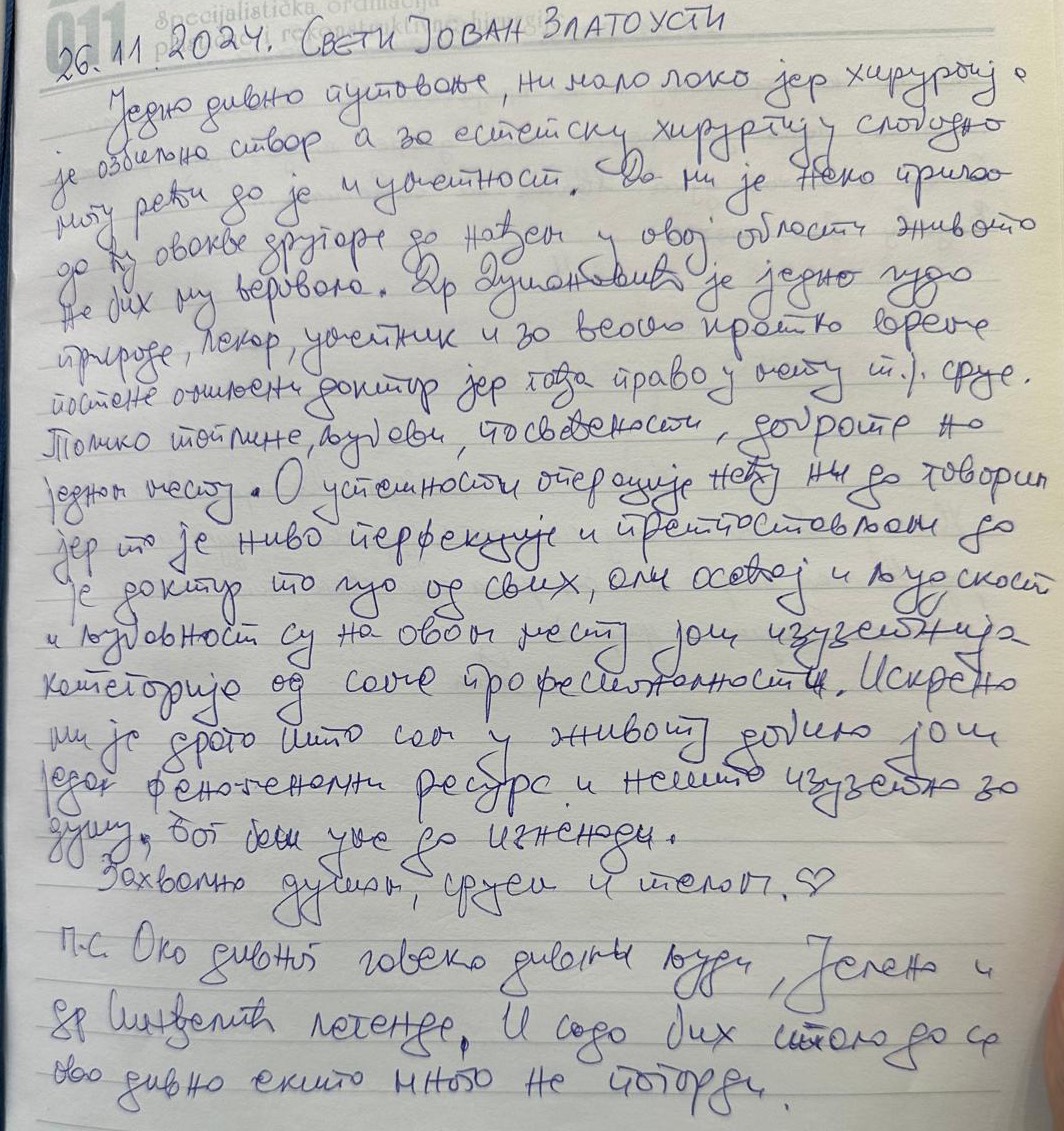 011 Specijalistička ordinacija
26.11.2024. СВЕТИ ЈОВАН ЗЛАТОУСТИ
Једно дивно путовање, ни мало лако јер хирургија
је озбиљна ствар а за естетску хирургију слободно
могу рећи да је и уметност. Да ми је неко причао
да ћу овакве другаре да нађем у овој области живота
не бих му веровала. Др Душановић је једно чудо
природе, лекар, уметник и за веома кратко време
постане омиљени доктор јер гађа право у мету т.ј. срце.
Толико топлине, љубави, посвећености, доброте на
једном месту. О успешности операције нећу ни да говорим
јер то је ниво перфекције и претпостављам да
је доктор то чуо од свих, али осећај и људскост
и љубавност су на овом месту још изузетнија
категорија од саме професионалности. Искрено
ми је драго што сам у животу добила још
један феноменални ресурс и нешто изузетно за
душу. Бог баш уме да изненади.
Захвална душом, срцем и телом. ♡
П.С. Око дивног човека дивни људи, Јелена и
др Синђелић легенде. И сада бих стала да се
ово дивно екипо много не погорди.